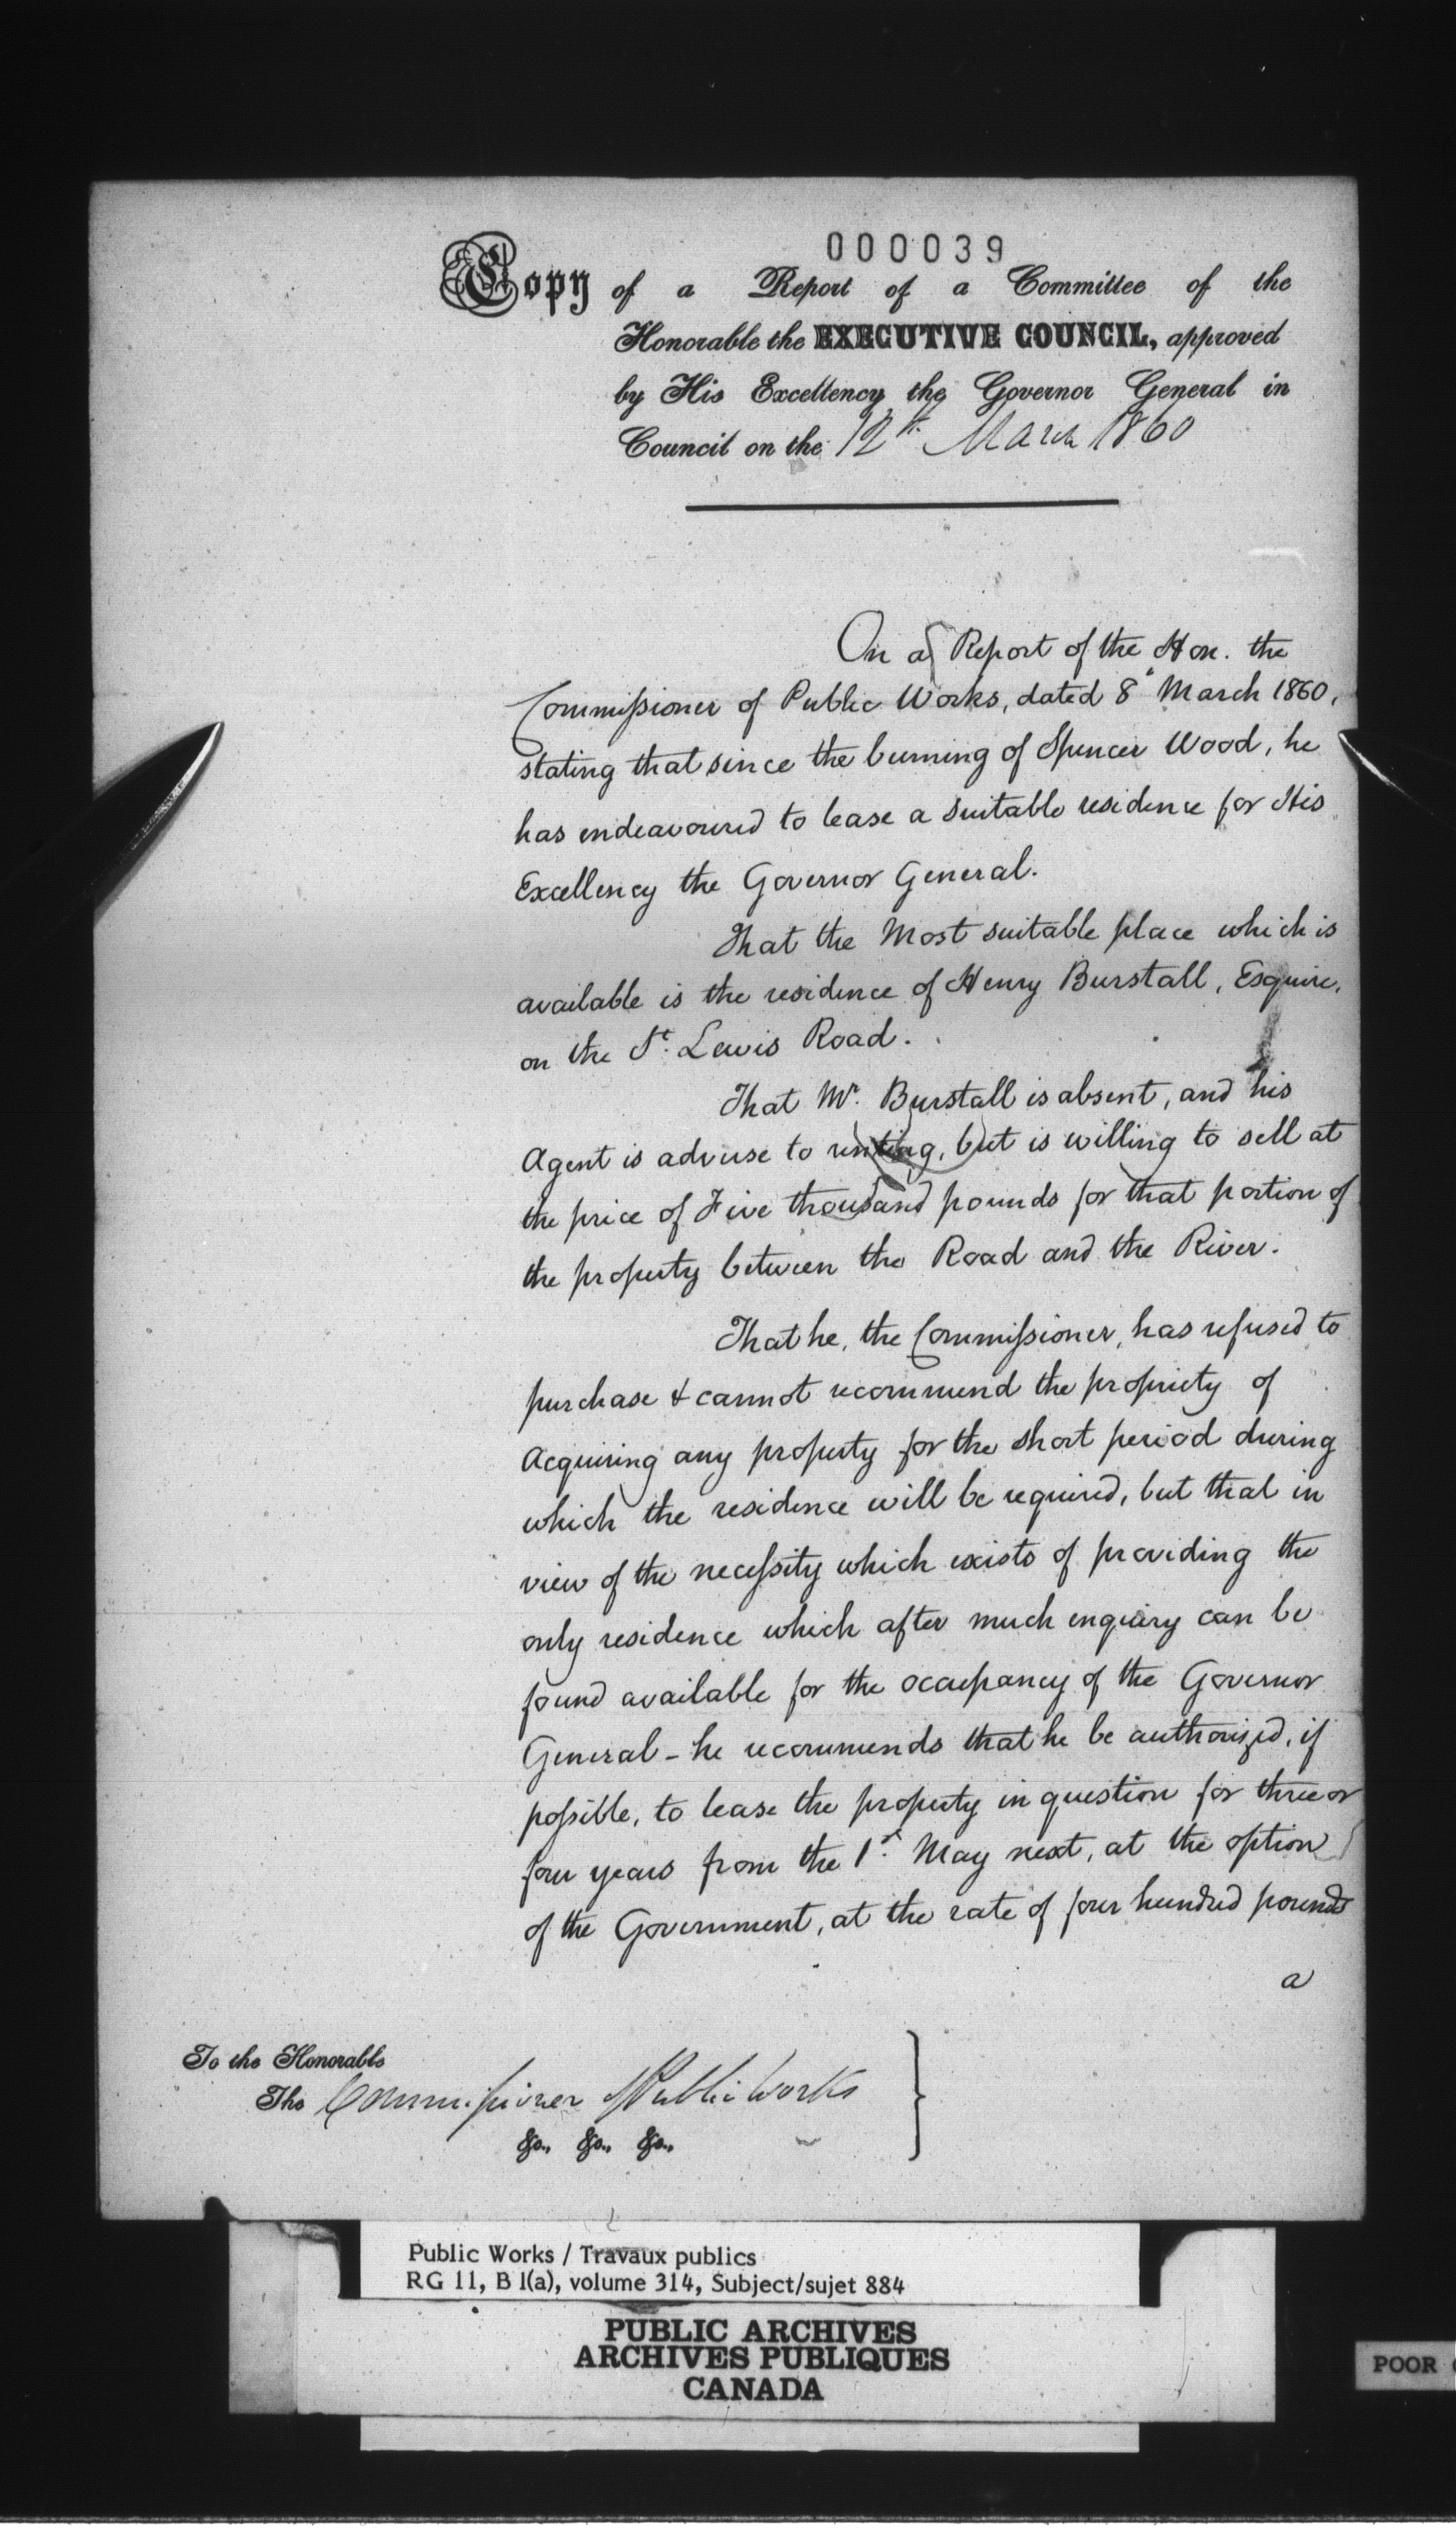 000039
Copy of a Report of a Committee of the
Honorable the EXECUTIVE COUNCIL, approved
by His Excellency the Governor General in
Council on the 12th March 1860
On a Report of the Hon. the
Commissioner of Public Works, dated 8th March 1860,
stating that since the burning of Spencer Wood, he
has endeavoured to lease a suitable residence for His
Excellency the Governor General.
That the Most suitable place which is
available is the residence of Henry Burstall, Esquire,
on the St. Lewis Road.
That Mr. Burstall is absent, and his
Agent is adverse to renting, but is willing to sell at
the price of Five thousand pounds for that portion of
the property between the Road and the River.
That he, the Commissioner, has refused to
purchase & cannot recommend the propriety of
Acquiring any property for the short period during
which the residence will be required, but that in
view of the necessity which exists of providing the
only residence which after much enquiry can be
found available for the occupancy of the Governor
General - he recommends that he be authorized, if
possible, to lease the property in question for three or
four years from the 1st. May next, at the option
of the Government, at the rate of four hundred pounds
a
To the Honorable
The Commissioner Public Works
&c., &c., &c.,
Public Works / Travaux publics
RG 11, B 1(a), volume 314, Subject/sujet 884
PUBLIC ARCHIVES
ARCHIVES PUBLIQUES
CANADA
POOR